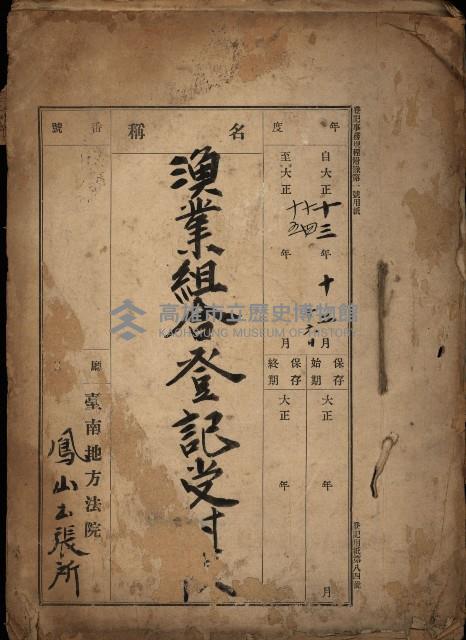 登記事務規程附錄第一號用紙
年 度
自大正十三年十月
至大正十四 十五年 月
保存始期 大正 年 月
保存終期 大正 年
名稱
漁業組合登記受付
番號
廳
臺南地方法院
鳳山出張所
登記用紙第八四號
高雄市立歷史博物館
KAOHSIUNG MUSEUM OF HISTORY